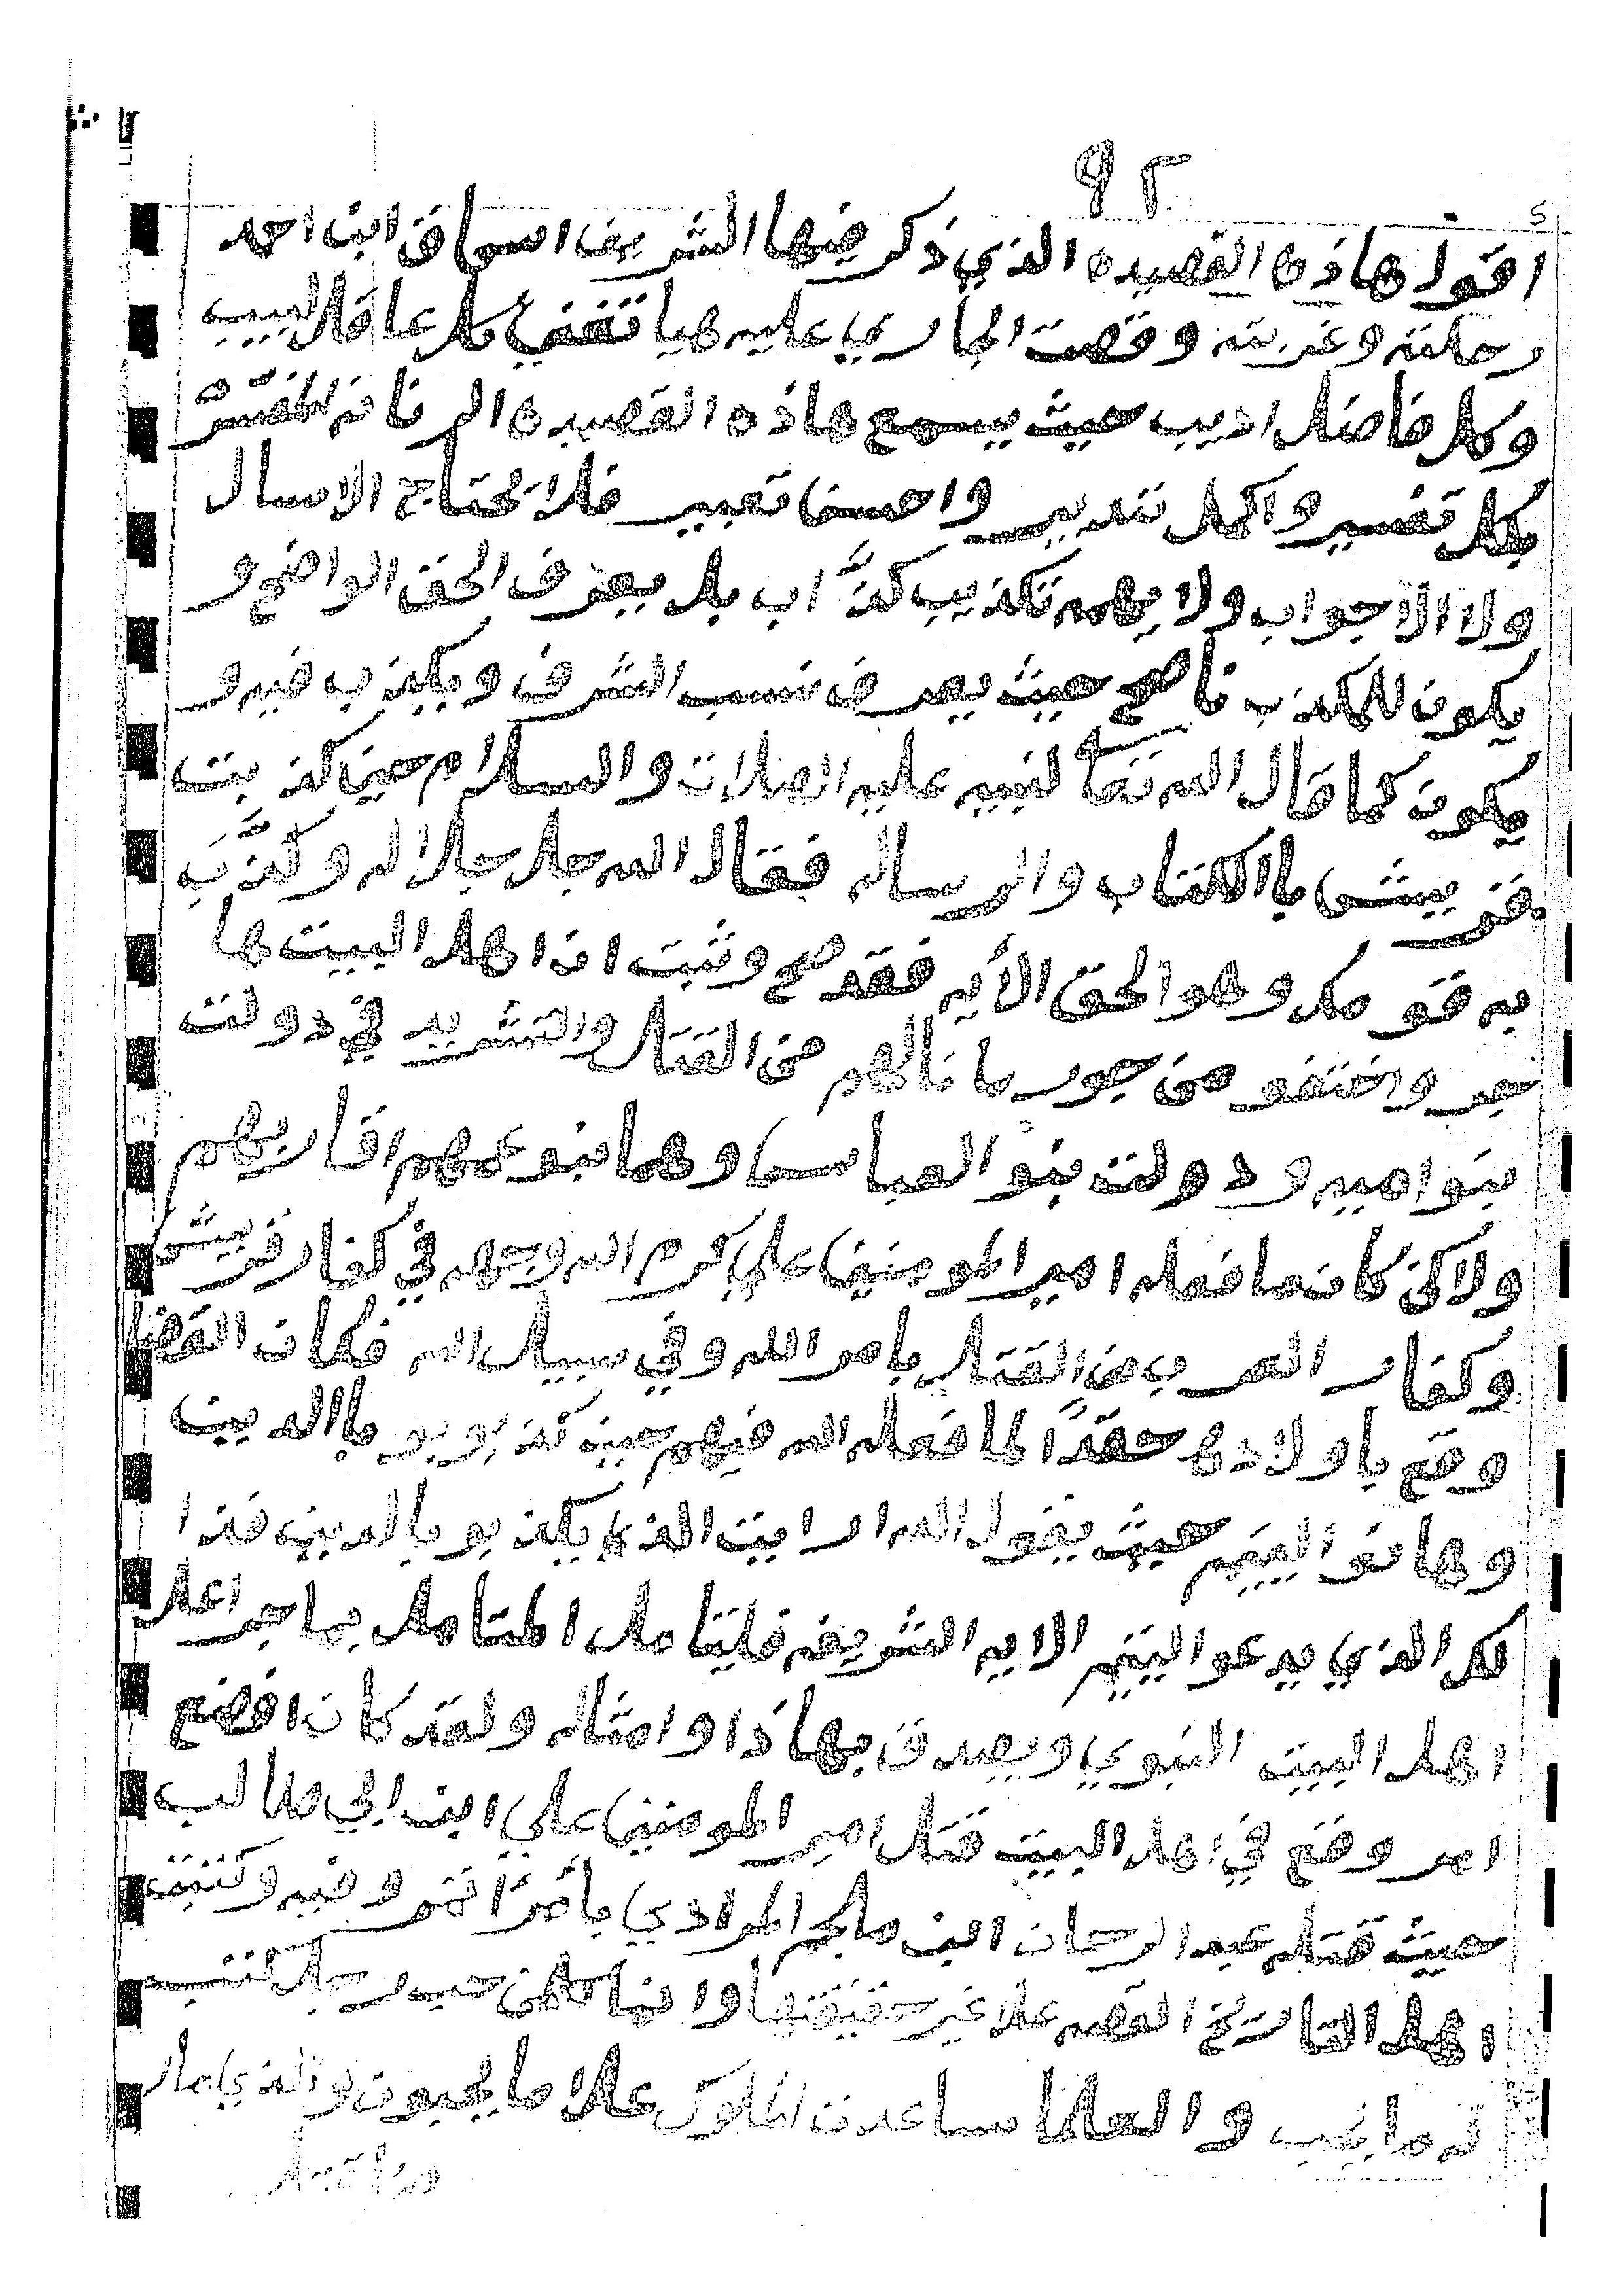 ٩٢
اقول هاذه القصيده الذي ذكر فيها الشريف اسحاق ابن احمد
رحلته وغربته وقصت الجاري عليه هيا تقنع كل عاقل لبيب
وكل فاضل اديب حيث يسمع هاذه القصيده الرنانه المفسر
بكل تفسير واكمل تدبير واحسن تعبير فلا يحتاج الاسال
ولا الاجواب ولا يهمه تكذيب كذَّاب بل يعرف الحق الواضح و
يكون للمكذب ناصح حيث يعرف نسب الشرف ويكذب فيه و
يكون كما قال الله تعا لنبيه عليه الصلات والسلام حين كذبت
قريش باالكتاب والرساله فقال الله جل جلاله وكذَّبَ
به قومك وهو الحق الأيه فقد صح وثبت ان اهل البيت ها
جرو واختفو من جور ما نالهم من القتل والتشريد في دولت
بنو اميه ودولت بنو العباس وهما بنو عمهم اقاربهم
ولاكن كان ما فعله امير المومنين علي كرم الله وجهه في كفار قريش
وكفار العرب من القتل بامر الله وفي سبيل الله فكان القضا
وقع باولاده حقدًا لما فعله الله فيهم حين كذبو بو باالديت
وهانو اليتيم حيث يقول الله ارايت الذي يكذبو بالدين فذا
لك الذي يدعو اليتيم الايه الشريفه فليتامل المتامل بما جرا على
اهل البيت النبوي ويصدق بهاذا وامثاله ولقد كان افضع
امر وقع في اهل البيت قتل امير المومنين علي ابن ابي طالب
حيث قتله عبد الرحان ابن ملجم المرادي بأمرًا تم وفيه وكتبت
اهل التاريخ القصه علا غير حقيقتها وانما كلمن حب رجل كتب
له ما يحب والعلما ساعدت الملوك علا ما يحبون والذي مار